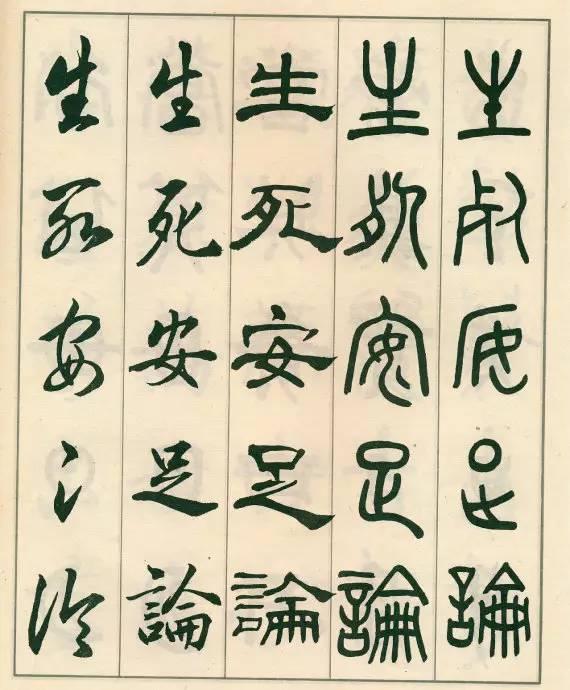 生死安足論
生死安足論
生死安足論
生死安足論
生死安足論